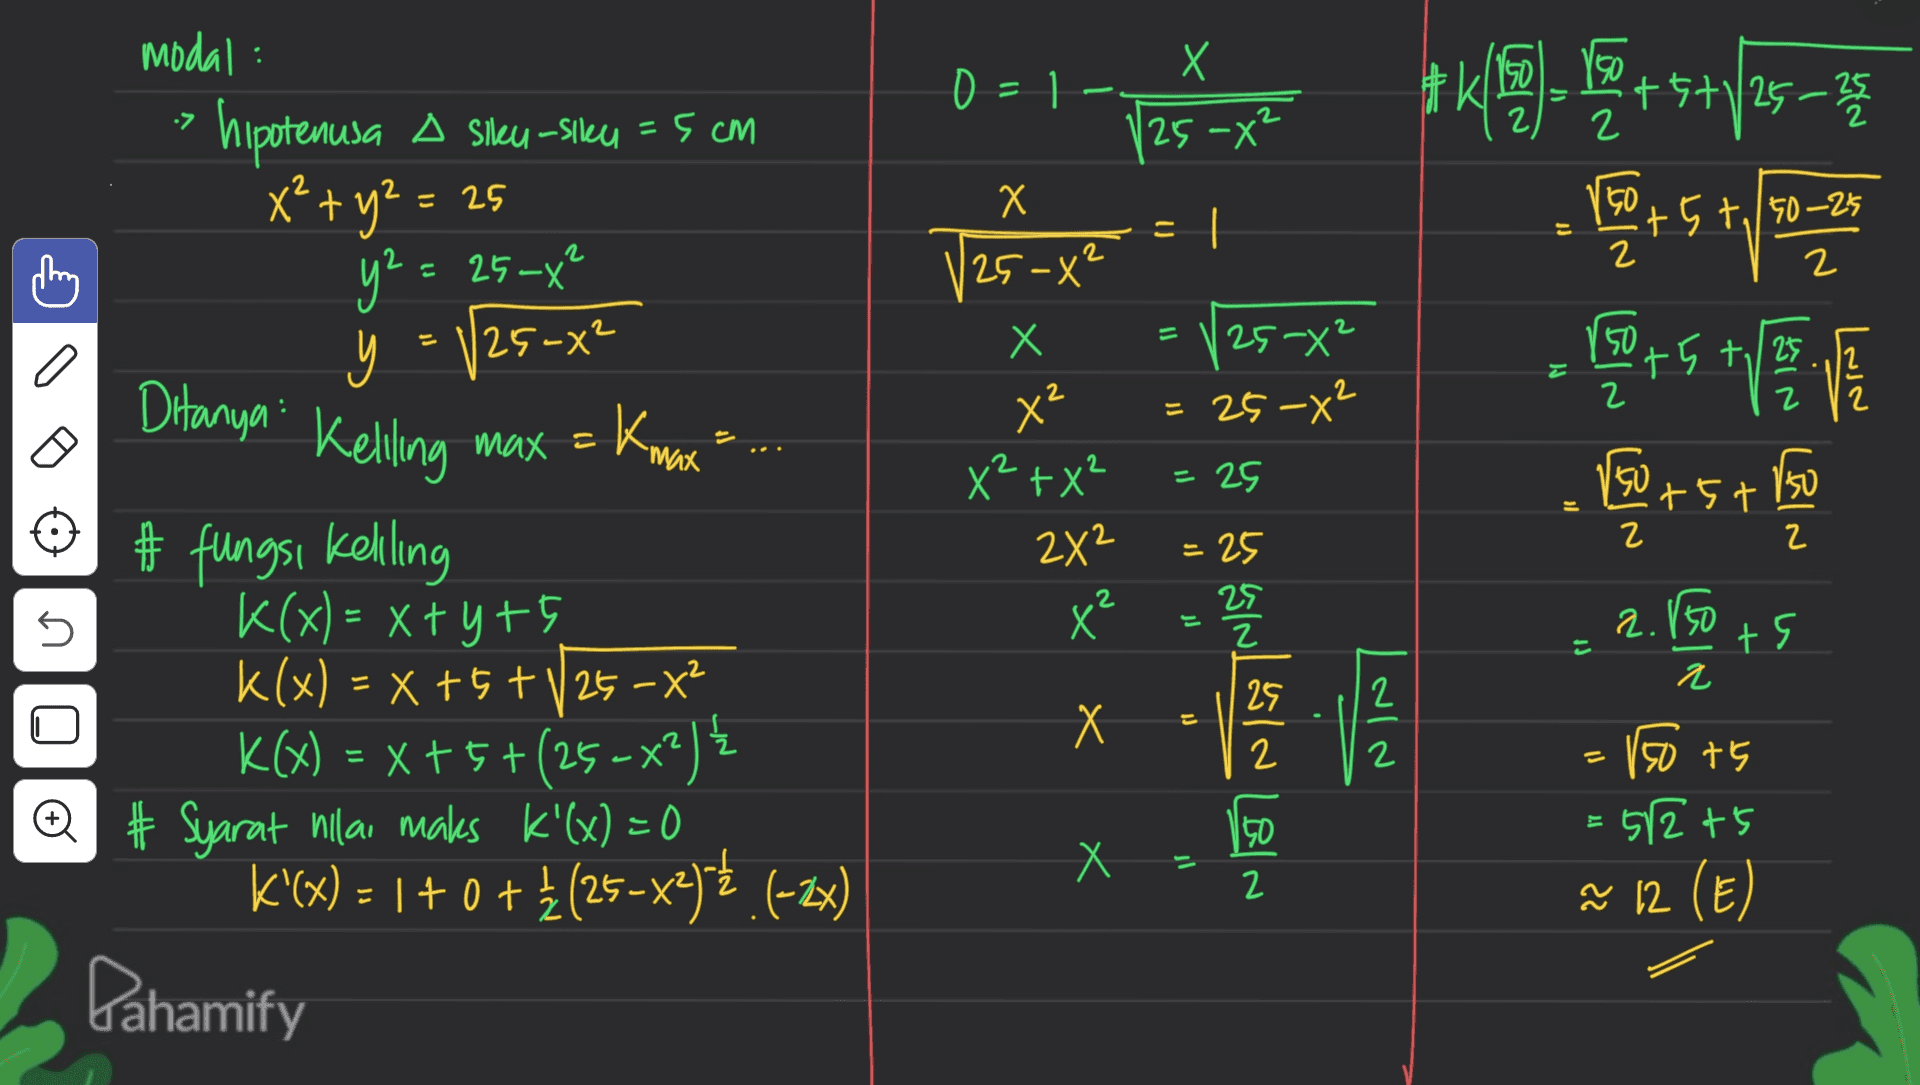 modal :
-> hipotenusa Δ siku-siku = 5 cm
x² + y² = 25
y² = 25-x²
y = √(25-x²)
Ditanya : Keliling max = Kmax = ...
# fungsi keliling
K(x) = x + y + 5
K(x) = x + 5 + √(25-x²)
K(x) = x + 5 + (25-x²)^½
# Syarat nilai maks K'(x) = 0
K'(x) = 1 + 0 + ½ (25-x²)^-½ . (-2x)
0 = 1 - x/√(25-x²)
x/√(25-x²) = 1
x = √(25-x²)
x² = 25-x²
x² + x² = 25
2x² = 25
x² = 25/2
x = √(25/2) · √(2/2)
x = √50/2
# K(√50/2) = √50/2 + 5 + √(25 - 25/2)
= √50/2 + 5 + √((50-25)/2)
= √50/2 + 5 + √(25/2) · √(2/2)
= √50/2 + 5 + √50/2
= 2 . √50/2 + 5
= √50 + 5
= 5√2 + 5
≈ 12 (E)
Pahamify